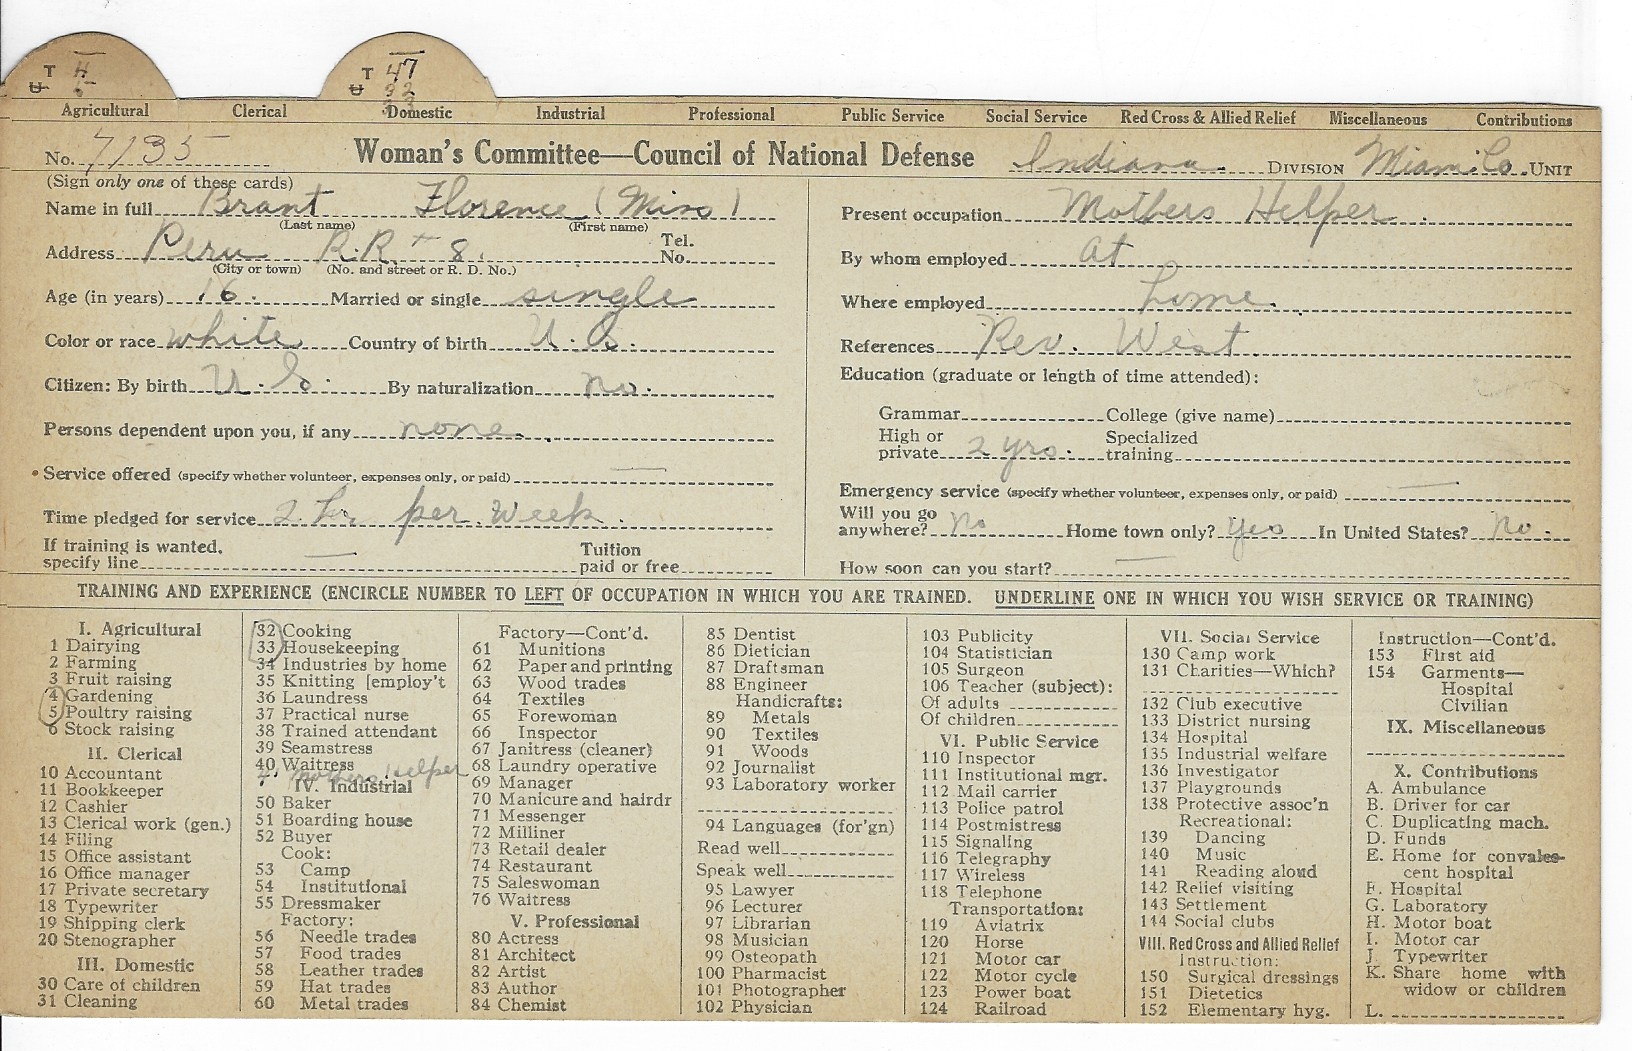 T 4 T 47
U 5 U 32
33
Agricultural Clerical Domestic Industrial Professional Public Service Social Service Red Cross & Allied Relief Miscellaneous Contributions
No. 7135 Woman's Committee—Council of National Defense Indiana DIVISION Miami Co. UNIT
(Sign only one of these cards)
Name in full Brant Florence (Miss)
(Last name) (First name)
Address Peru R.R. 8. Tel. No.
(City or town) (No. and street or R. D. No.)
Age (in years) 16. Married or single single
Color or race white Country of birth U.S.
Citizen: By birth U.S. By naturalization no.
Persons dependent upon you, if any none.
Service offered (specify whether volunteer, expenses only, or paid) —
Time pledged for service 2 hr per week.
If training is wanted, specify line — Tuition paid or free
Present occupation Mothers Helper.
By whom employed at
Where employed home.
References Rev. West.
Education (graduate or length of time attended):
Grammar College (give name)
High or private 2 yrs. Specialized training
Emergency service (specify whether volunteer, expenses only, or paid) —
Will you go anywhere? no Home town only? yes In United States? no.
How soon can you start? —
TRAINING AND EXPERIENCE (ENCIRCLE NUMBER TO LEFT OF OCCUPATION IN WHICH YOU ARE TRAINED. UNDERLINE ONE IN WHICH YOU WISH SERVICE OR TRAINING)
I. Agricultural
1 Dairying
2 Farming
3 Fruit raising
4 Gardening
5 Poultry raising
6 Stock raising
II. Clerical
10 Accountant
11 Bookkeeper
12 Cashier
13 Clerical work (gen.)
14 Filing
15 Office assistant
16 Office manager
17 Private secretary
18 Typewriter
19 Shipping clerk
20 Stenographer
III. Domestic
30 Care of children
31 Cleaning
32 Cooking
33 Housekeeping
34 Industries by home
35 Knitting [employ't
36 Laundress
37 Practical nurse
38 Trained attendant
39 Seamstress
40 Waitress
Mothers Helper
IV. Industrial
50 Baker
51 Boarding house
52 Buyer
Cook:
53 Camp
54 Institutional
55 Dressmaker
Factory:
56 Needle trades
57 Food trades
58 Leather trades
59 Hat trades
60 Metal trades
Factory—Cont'd.
61 Munitions
62 Paper and printing
63 Wood trades
64 Textiles
65 Forewoman
66 Inspector
67 Janitress (cleaner)
68 Laundry operative
69 Manager
70 Manicure and hairdr
71 Messenger
72 Milliner
73 Retail dealer
74 Restaurant
75 Saleswoman
76 Waitress
V. Professional
80 Actress
81 Architect
82 Artist
83 Author
84 Chemist
85 Dentist
86 Dietician
87 Draftsman
88 Engineer
Handicrafts:
89 Metals
90 Textiles
91 Woods
92 Journalist
93 Laboratory worker
94 Languages (for'gn)
Read well
Speak well
95 Lawyer
96 Lecturer
97 Librarian
98 Musician
99 Osteopath
100 Pharmacist
101 Photographer
102 Physician
103 Publicity
104 Statistician
105 Surgeon
106 Teacher (subject):
Of adults
Of children
VI. Public Service
110 Inspector
111 Institutional mgr.
112 Mail carrier
113 Police patrol
114 Postmistress
115 Signaling
116 Telegraphy
117 Wireless
118 Telephone
Transportation:
119 Aviatrix
120 Horse
121 Motor car
122 Motor cycle
123 Power boat
124 Railroad
VII. Social Service
130 Camp work
131 Charities—Which?
132 Club executive
133 District nursing
134 Hospital
135 Industrial welfare
136 Investigator
137 Playgrounds
138 Protective assoc'n
Recreational:
139 Dancing
140 Music
141 Reading aloud
142 Relief visiting
143 Settlement
144 Social clubs
VIII. Red Cross and Allied Relief
Instruction:
150 Surgical dressings
151 Dietetics
152 Elementary hyg.
Instruction—Cont'd.
153 First aid
154 Garments—
Hospital
Civilian
IX. Miscellaneous
X. Contributions
A. Ambulance
B. Driver for car
C. Duplicating mach.
D. Funds
E. Home for convales-
cent hospital
F. Hospital
G. Laboratory
H. Motor boat
I. Motor car
J. Typewriter
K. Share home with
widow or children
L.